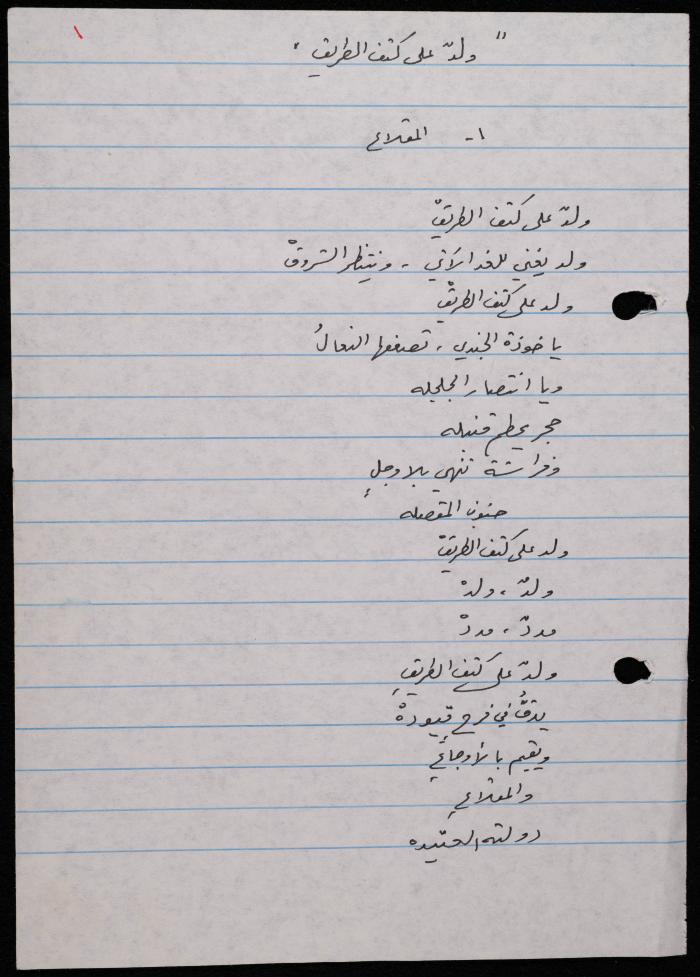 ١
" ولدٌ على كتف الطريق "
١- المقلاع
ولدٌ على كتف الطريقْ
ولد يغني للغد الآتي ، وينتظر الشروقْ
ولد على كتف الطريقْ
يا خوذة الجندي ، تصفعها النعالُ
ويا انتصار الجلجله
حجر يحطم قنبله
وفراشة تنهي بلا وجلٍ
جنون المقصله
ولد على كتف الطريقْ
ولدٌ ، ولدْ
مددٌ ، مددْ
ولدٌ على كتف الطريقِ
يدقُّ في فرح قيودهْ
ويقيم بالأوجاعِ
والمقلاعِ
دولته العتيده